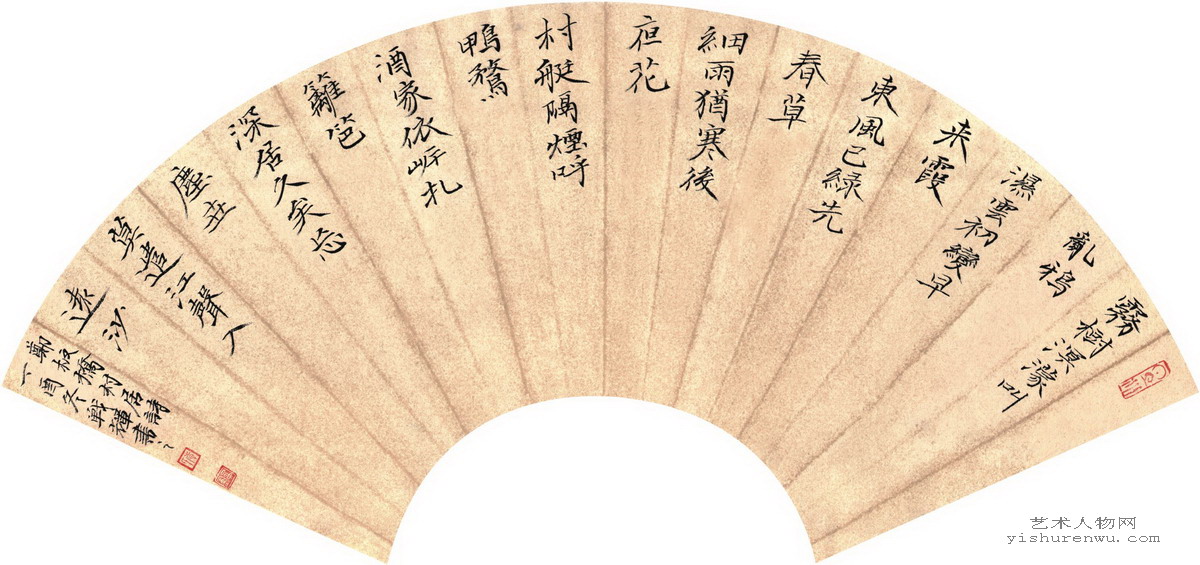 霧樹溟濛叫
亂鴉
濕雲初變早
来霞
東風已綠先
春草
細雨猶寒後
亱花
村艇隔煙呼
鴨鶩
酒家依岸札
籬笆
深居久矣忘
塵世
莫遣江聲入
遠沙
鄭板橋村居詩
丁酉冬戰輝書
艺术人物网
yishurenwu.com